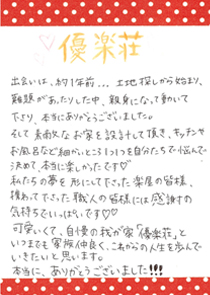 優楽荘
出会いは、約1年前… 土地探しから始まり、
難題があったりした中、親身になって動いて
下さり、本当にありがとうございました。
そして素敵なお家を設計して頂き、キッチンや
お風呂など細かいところ1つ1つを自分たちで悩んで
決めて、本当に楽しかったです♡
私たちの夢を形にして下さった楽屋の皆様、
携わって下さった職人の皆様には感謝の
気持ちでいっぱいです♡♡
可愛くて、自慢の我が家「優楽荘」と
いつまでも家族仲良く、これからの人生を歩んで
いきたいと思います。
本当に、ありがとうございました!!!